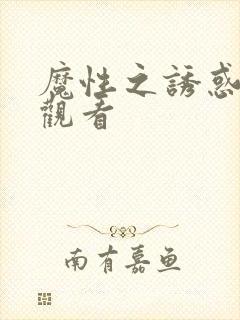 魔性之誘惑
觀看
南有嘉鱼